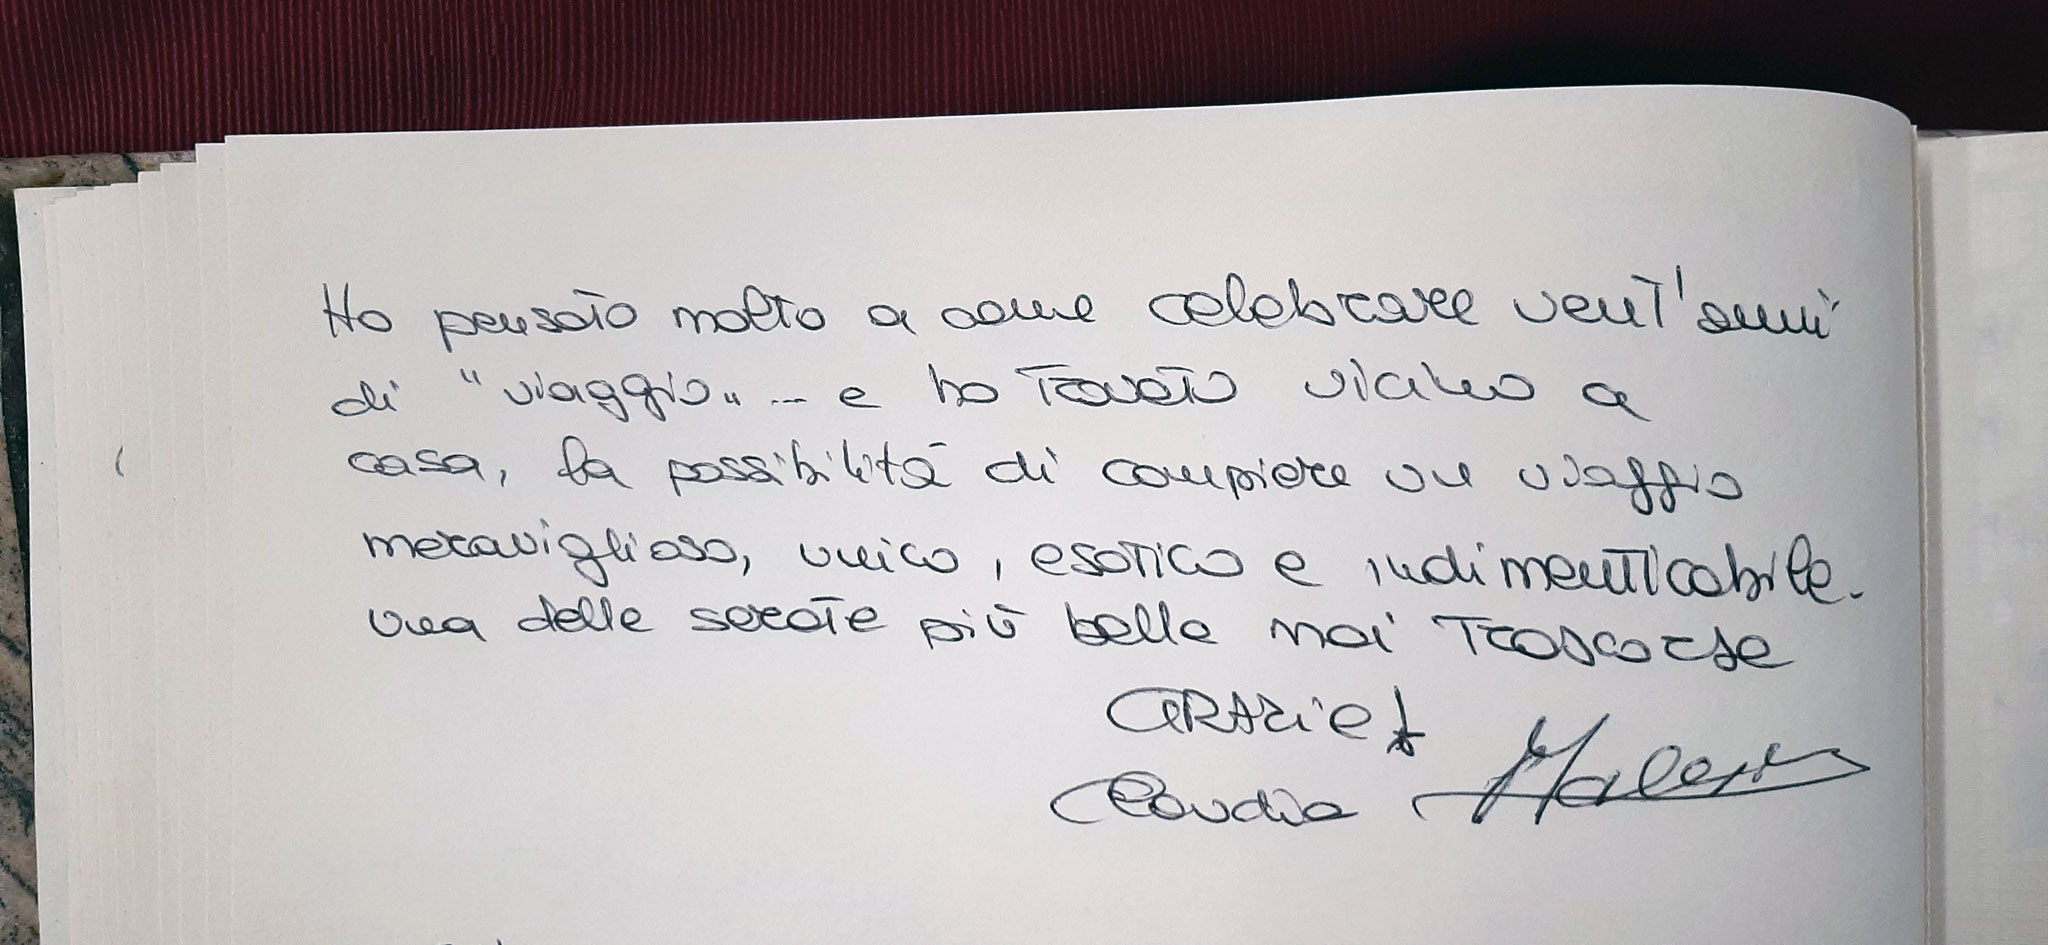 Ho pensato molto a come celebrare vent'anni
di "viaggio" ... e ho trovato vicino a
casa, la possibilità di compiere un viaggio
meraviglioso, unico, esotico e indimenticabile.
una delle serate più belle mai trascorse
GRAZIE
Claudia